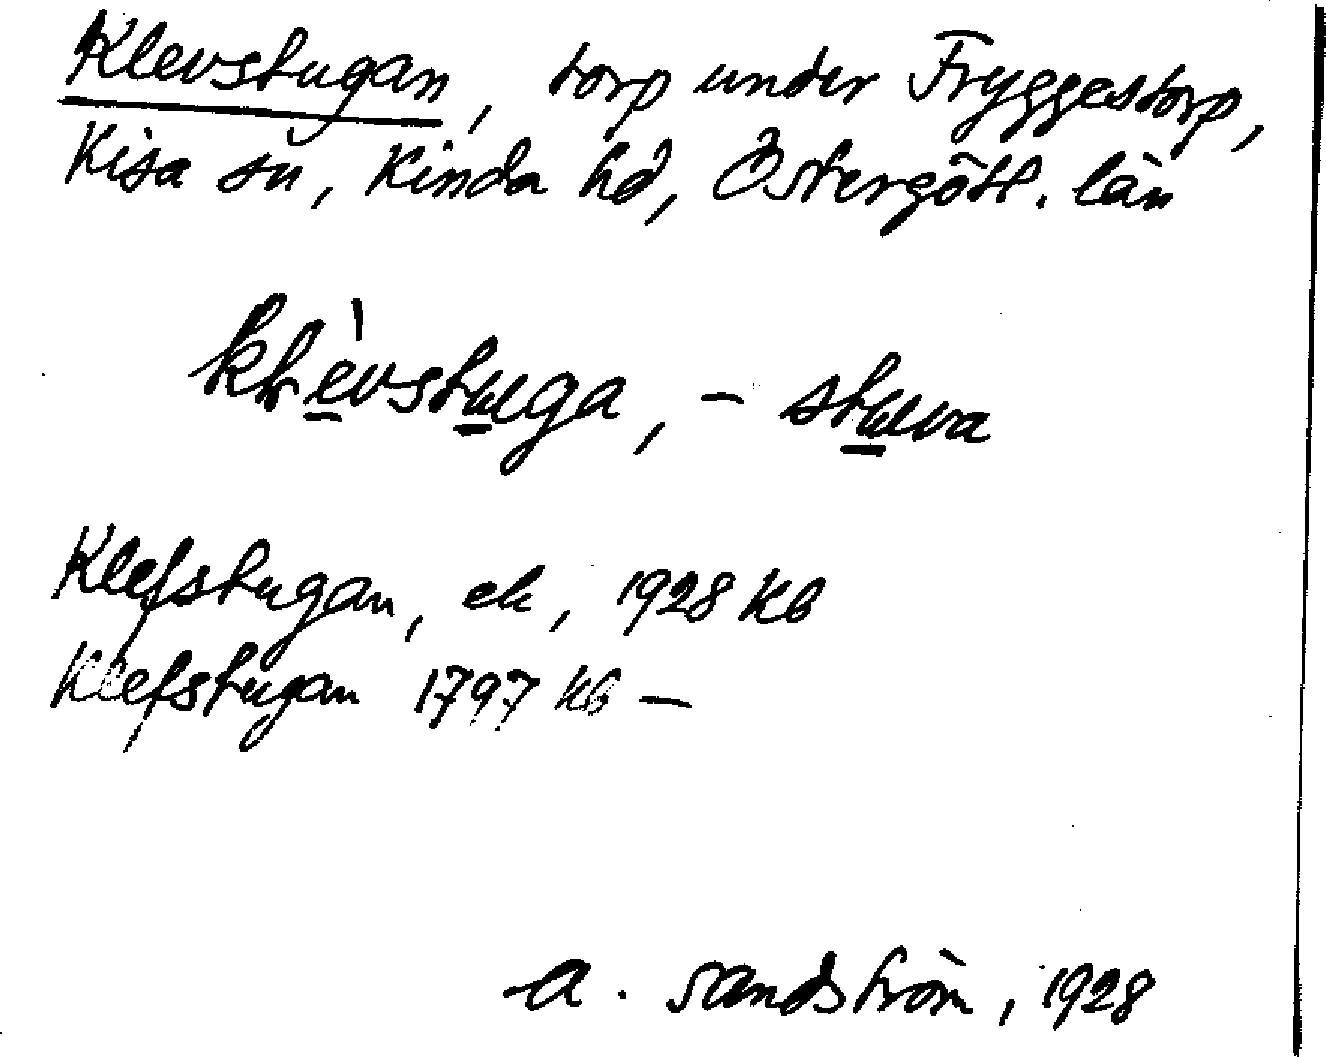 Klevstugan, torp under Fryggestorp,
Kisa sn, Kinda hd, Östergötl. län
klèvstuga, - stuva
Klefstugan, ek, 1928 Kb
Klefstugan 1797 Kb —
A. Sandström, 1928